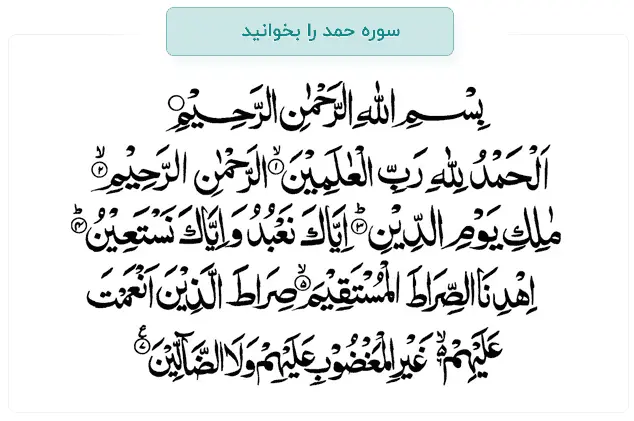 سوره حمد را بخوانید
بِسْمِ اللّٰهِ الرَّحْمٰنِ الرَّحِيْمِ
اَلْحَمْدُ لِلّٰهِ رَبِّ الْعٰلَمِيْنَ ۙ﴿۱﴾ الرَّحْمٰنِ الرَّحِيْمِ ۙ﴿۲﴾
مٰلِكِ يَوْمِ الدِّيْنِ ؕ﴿۳﴾ اِيَّاكَ نَعْبُدُ وَاِيَّاكَ نَسْتَعِيْنُ ؕ﴿۴﴾
اِهْدِنَا الصِّرَاطَ الْمُسْتَقِيْمَ ۙ﴿۵﴾ صِرَاطَ الَّذِيْنَ اَنْعَمْتَ
عَلَيْهِمْ ۙ۬ غَيْرِ الْمَغْضُوْبِ عَلَيْهِمْ وَلَا الضَّآلِّيْنَ ﴿۷﴾ ع